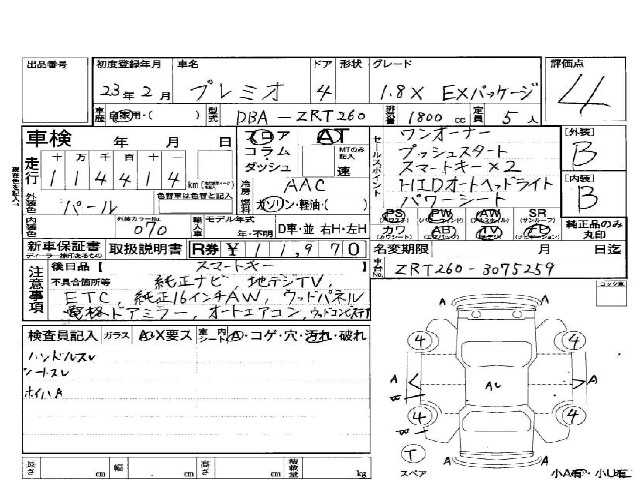 出品番号 初度登録年月 車名 ドア 形状 グレード 評価点
23年2月 プレミオ 4 1.8X EXパッケージ 4
車歴 自家用・( ) 型式 DBA-ZRT260 排気量 1800 cc 定員 5 人
車検 年 月 日 シフト フロア AT セールスポイント ワンオーナー [外装] B
コラム・ダッシュ MTのみ記入 速 プッシュスタート
走行 十 万 千 百 十 一 スマートキー×2
114414 km 冷房 AAC HIDオートヘッドライト [内装] B
外装色 パール 色替車は色替と記入 燃料 ガソリン・軽油・( ) パワーシート
PS PW AW SR 純正品のみ丸印
内装色 外装カラーNo. 070 輸入車 モデル年式 年・不明 D車・並 右H・左H カワ AB TV
新車保証書 取扱説明書 R券 ¥11,970 名変期限 月 日迄
注意事項 後日品【 スマートキー 】 車台No. ZRT260-3075259
不具合箇所等 純正ナビ、地デジTV、
ETC、純正16インチAW、ウッドパネル
電格ドアミラー、オートエアコン、ウッドコンビステア
検査員記入 ガラス A・X要ス 室内シート A・コゲ・穴・汚れ・破れ
ハンドルスレ
シートスレ
ホイルA
4 4
A A AU A
4 4
A A
T
スペア
長さ cm 幅 cm 高さ cm 積載量 kg 小A有・小U有